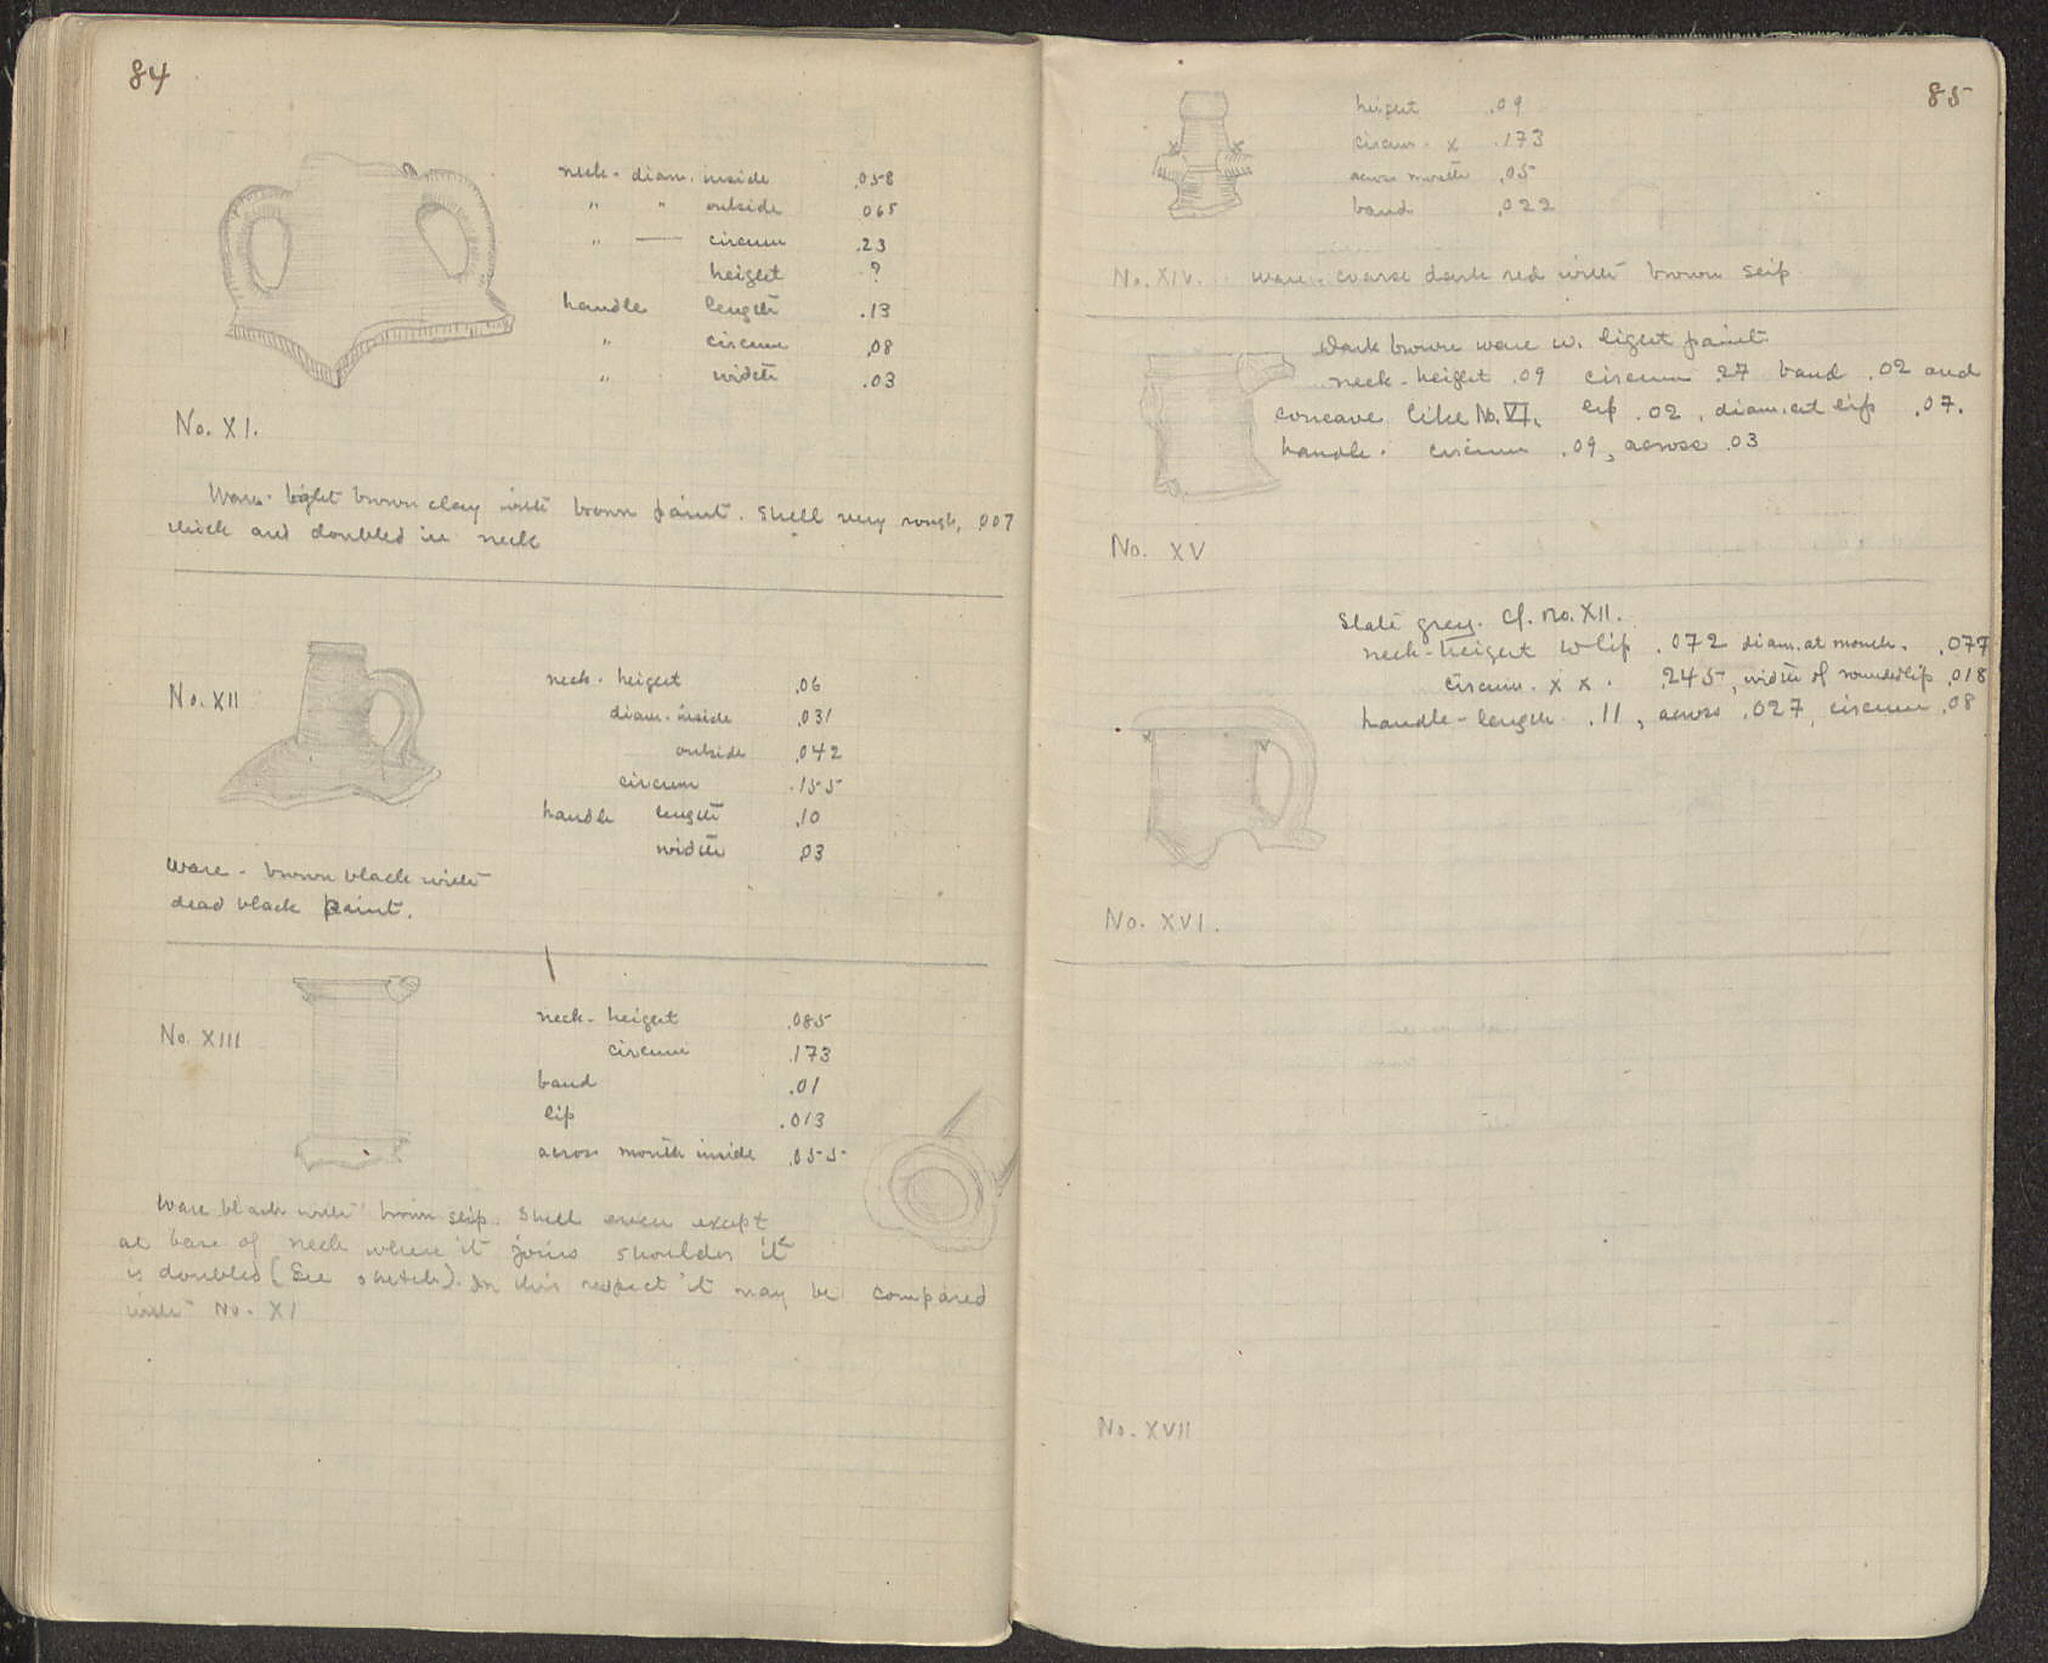 84
neck - diam. inside .058
" " outside .065
" — circum .23
height ?
handle length .13
" circum .08
" width .03
No. XI.
Ware - light brown clay with brown paint. Shell very rough, .007
thick and doubled in neck
No. XII
neck - height .06
diam. inside .031
outside .042
circum .155
handle length .10
width .03
Ware - brown black with
dead black paint.
No. XIII
neck - height .085
circum .173
band .01
lip .013
across mouth inside .055
Ware black with brown slip. Shell even except
at base of neck where it joins shoulder it
is doubled (See sketch). In this respect it may be compared
with No. XI
85
height .09
x x
circum. x .173
across mouth .05
band .022
No. XIV. Ware - coarse dark red with brown slip
Dark brown ware w. light paint
neck - height .09 circum .27 band .02 and
concave like No. VI. lip .02, diam. at lip .07.
handle. circum .09, across .03
No. XV
Slate grey. Cf. No. XII.
neck - height w lip .072 diam. at mouth. .077
circum. x x . .245, width of rounded lip .018
handle - length .11, across .027, circum .08
x x
No. XVI.
No. XVII